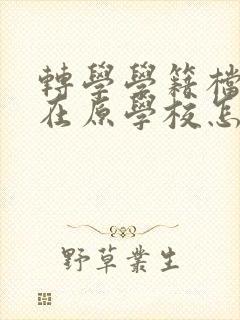 轉學學籍檔
在原學校怎
野草叢生